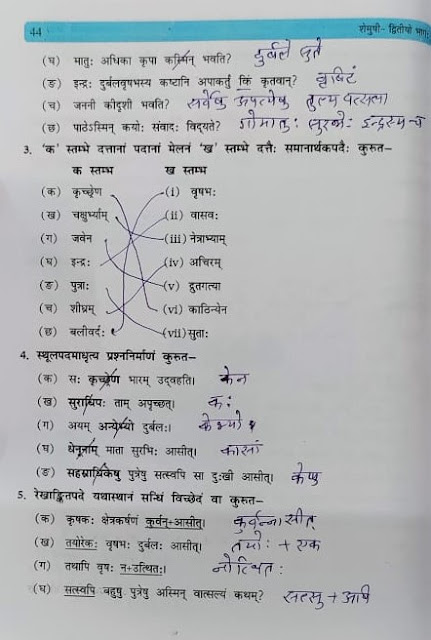 44 शेमुषी- द्वितीयो भागः
(घ) मातुः अधिका कृपा कस्मिन् भवति? दुर्बले सुते
(ङ) इन्द्रः दुर्बलवृषभस्य कष्टानि अपाकर्तुं किं कृतवान्? वृष्टिं
(च) जननी कीदृशी भवति? सर्वेषु अपत्येषु तुल्य वत्सला
(छ) पाठेऽस्मिन् कयोः संवादः विद्यते? गोमातुः सुरभेः इन्द्रस्य च
3. 'क' स्तम्भे दत्तानां पदानां मेलनं 'ख' स्तम्भे दत्तैः समानार्थकपदैः कुरुत–
क स्तम्भ ख स्तम्भ
(क) कृच्छ्रेण (i) वृषभः
(ख) चक्षुर्भ्याम् (ii) वासवः
(ग) जवेन (iii) नेत्राभ्याम्
(घ) इन्द्रः (iv) अचिरम्
(ङ) पुत्राः (v) द्रुतगत्या
(च) शीघ्रम् (vi) काठिन्येन
(छ) बलीवर्दः (vii) सुताः
4. स्थूलपदमाधृत्य प्रश्ननिर्माणं कुरुत–
(क) सः कृच्छ्रेण भारम् उद्वहति। केन
(ख) सुराधिपः ताम् अपृच्छत्। कः
(ग) अयम् अन्येभ्यो दुर्बलः। केभ्यो
(घ) धेनूनाम् माता सुरभिः आसीत्। कासां
(ङ) सहस्राधिकेषु पुत्रेषु सत्स्वपि सा दुःखी आसीत्। केषु
5. रेखाङ्कितपदे यथास्थानं सन्धिं विच्छेदं वा कुरुत–
(क) कृषकः क्षेत्रकर्षणं कुर्वन्+आसीत्। कुर्वन्नासीत्
(ख) तयोरेकः वृषभः दुर्बलः आसीत्। तयोः + एक
(ग) तथापि वृषः न+उत्थितः। नोत्थितः
(घ) सत्स्वपि बहुषु पुत्रेषु अस्मिन् वात्सल्यं कथम्? सत्सु + अपि